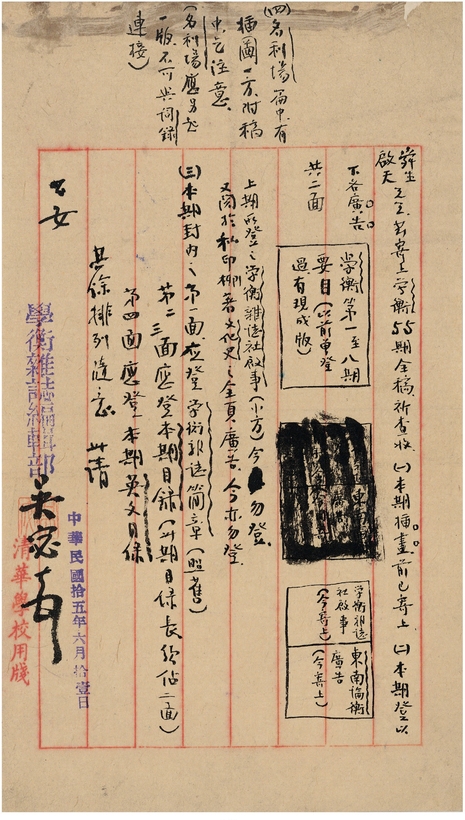 舜生
啟天
先生 茲寄上學衡55期全稿祈查收 (一)本期插畫前已寄上 (二)本期登以
下各廣告。
共二面
學衡第一至八期
要目(以前曾登
過有現成版)
學衡雜誌
社啟事
(今寄上)
東南論衡
廣告
(今寄上)
上期所登之學衡雜誌社啟事(小方)今勿登。
又関於私印柳著文化史之全頁廣告。今亦勿登。
(三)本期封內之第一面應登學衡雜誌簡章(照舊)
第二三面應登本期目錄(此期目錄長約佔二面)
第四面應登本期英文目錄
其餘排列隨意 此請
公安
學衡雜誌編輯部
吳宓啟
中華民國拾五年六月拾壹日
清華學校用牋
(四)名利場篇中有
插圖一方附稿
中乞注意
(名利場應另起
一版不可與詞錄
連接)